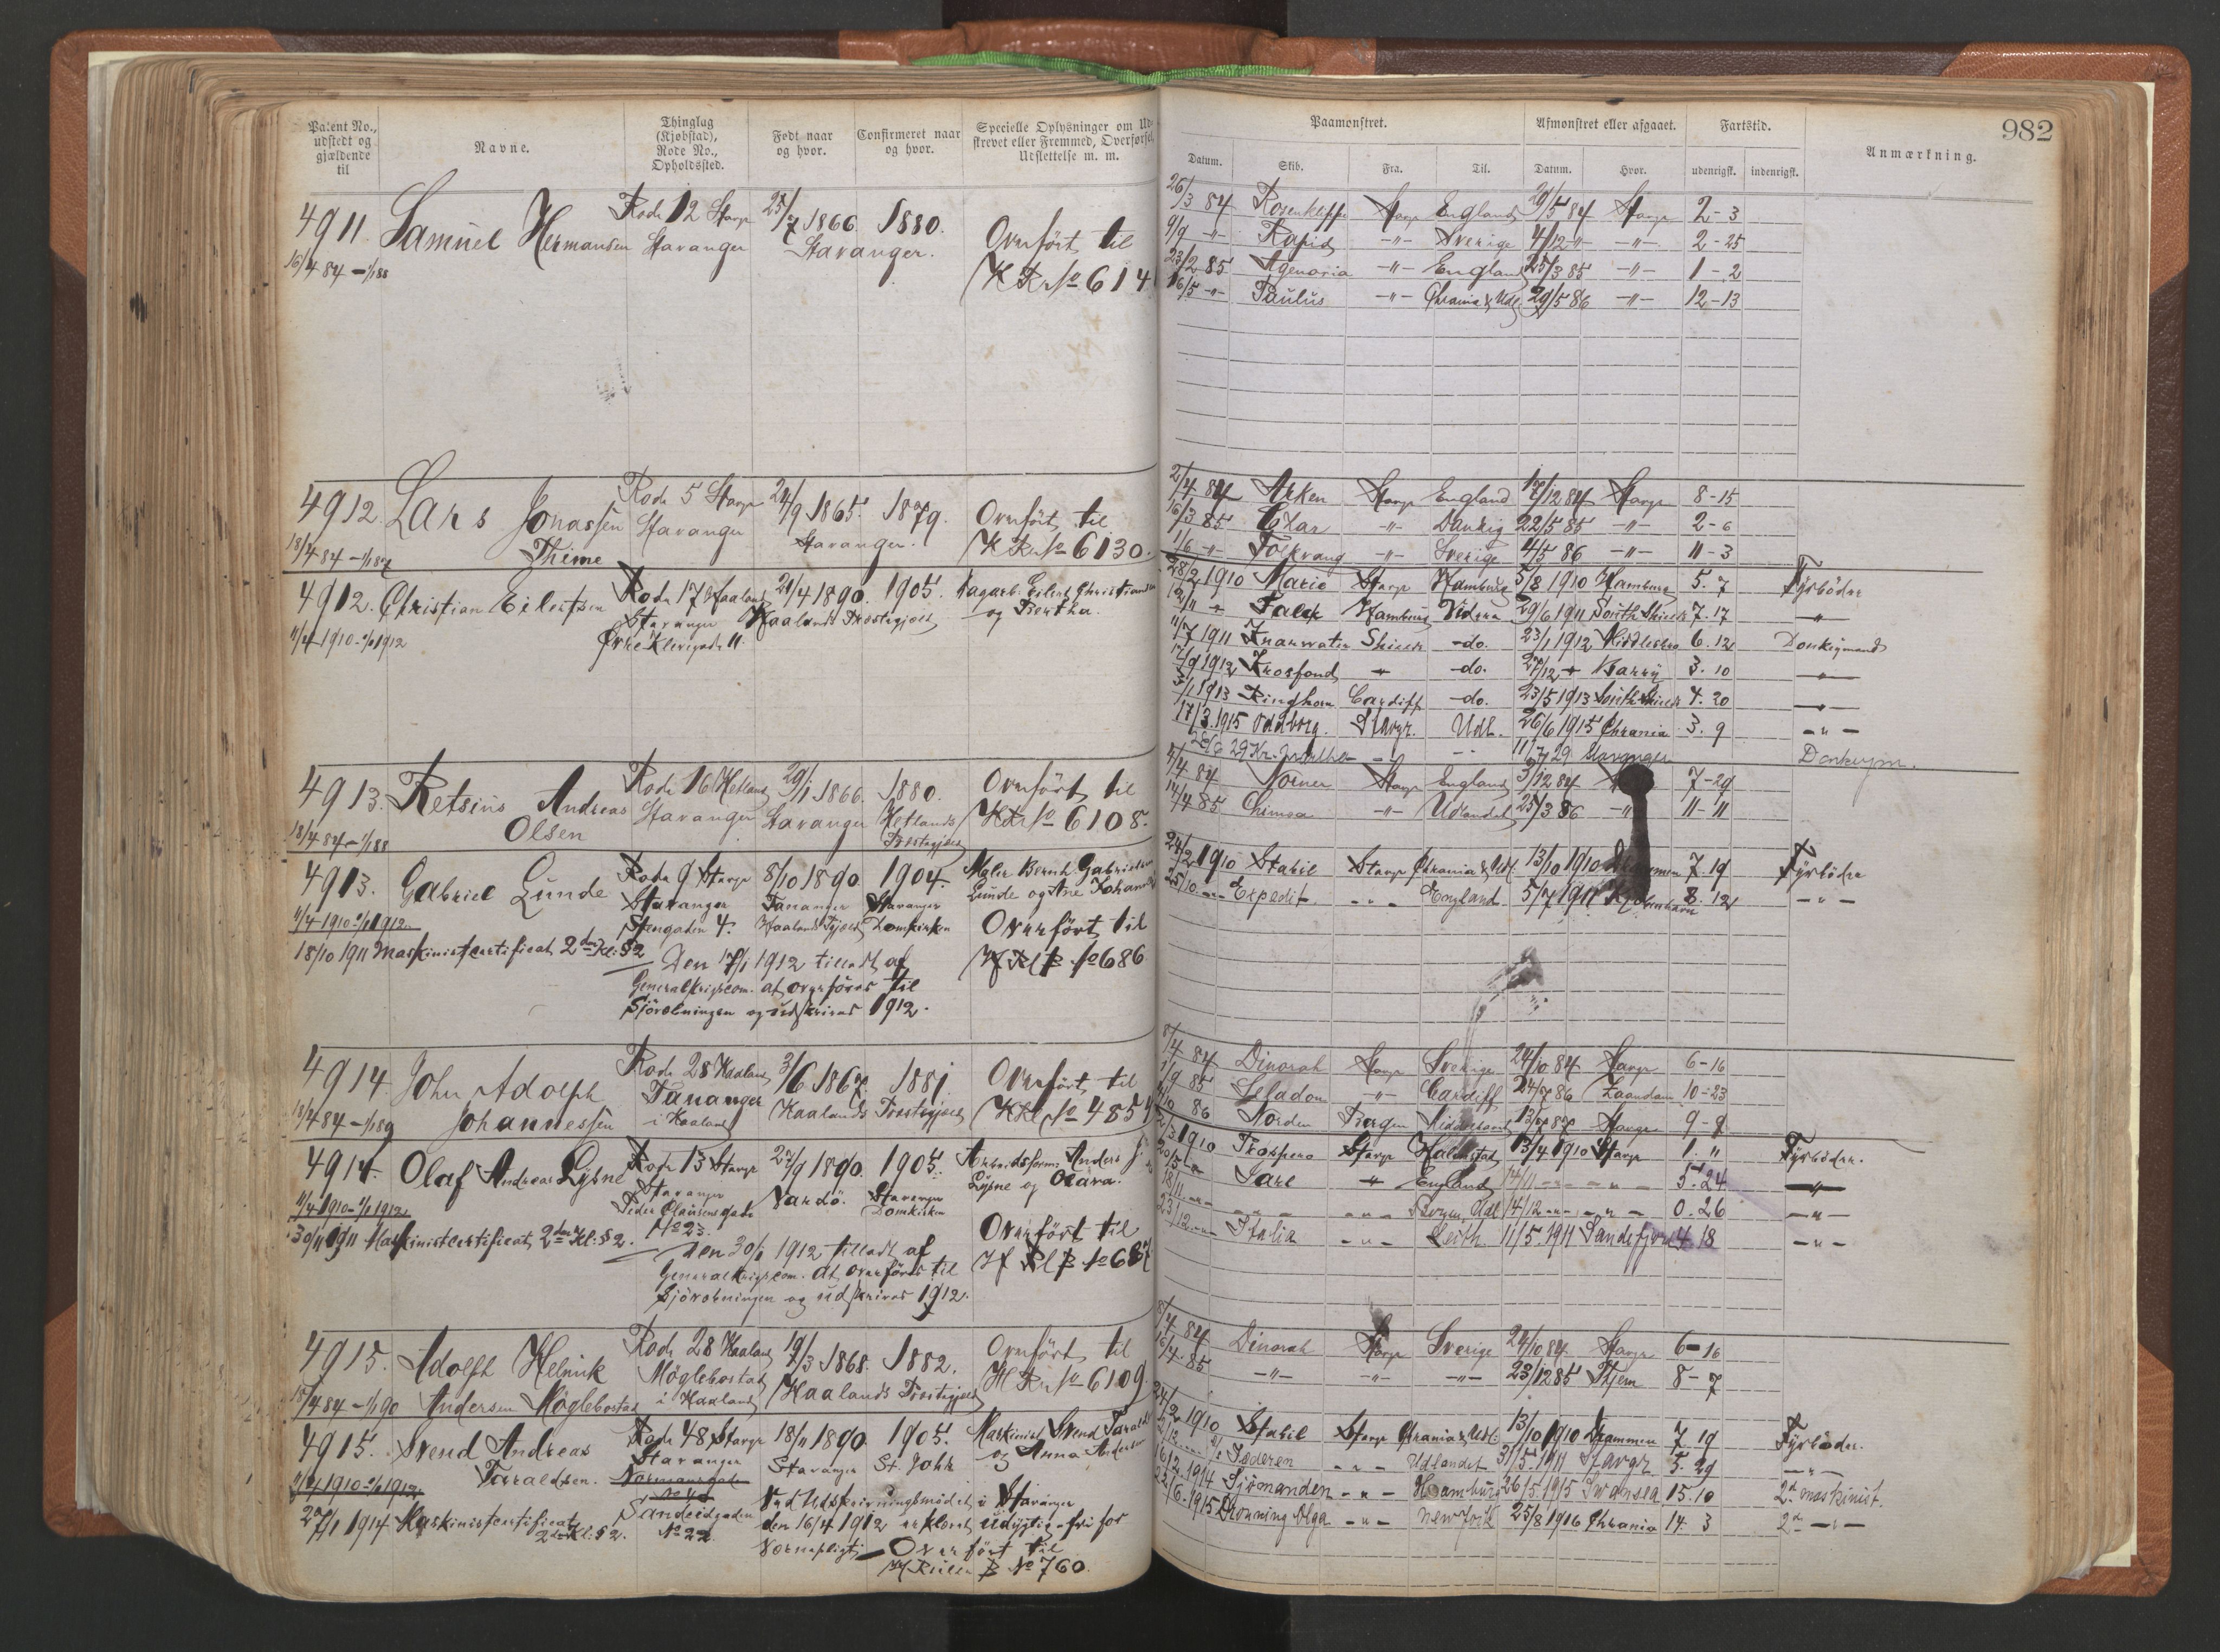 Patent No., udstedt og gjældende til
Navne.
Thinglag (Kjøbstad), Rode No., Opholdssted.
Født naar og hvor.
Confirmeret naar og hvor.
Specielle Oplysninger om Ud- skrevet eller Fremmed, Overførsel, Udslettelse m. m.
4911 Samuel Hermansen Rode 12 Stavgr 25/7 1866 1880.
16/4 84 - 1/1 88 Stavanger Stavanger. Overført til
H Rr No 614
4912. Lars Jonassen Rode 5 Stavgr 24/9 1865. 1879. Overført til
18/4 84 - 1/1 87 Thime Stavanger Stavanger. H Rr No 6130.
4912. Christian Eilertsen Rode 17 Haaland 20/4 1890. 1905. Eilert Christiansen
11/4 1910 - 1/1 1912 Stavanger Haalands Præstegjeld og Bertha.
Øvre Klevegade 11.
4913. Retsius Andreas Rode 16 Hetland 29/1 1866. 1880. Overført til
18/4 84 - 1/1 88 Olsen Stavanger Stavanger Hetlands Præstegjeld H Rr No 6108.
4913. Gabriel Lunde Rode 9 Stavgr 8/10 1890 1904. Maler Bernt Gabrielsen
11/4 1910 - 1/1 1912. Stavanger Tananger Stavanger Lunde og Ane
Stengaden 4. Haalands Pgjeld Domkirken Overført til
18/10 1911 Maskinistcertificat 2den Kl: § 2 H Rl B No 686
Den 17/1 1912 tilladt af
Generalkrigscom. at overføres til
Sjörulningen og udskrives 1912.
4914 John Adolph Rode 28 Haaland 3/6 1867. 1881 Overført til
18/4 84 - 1/1 89 Johannessen Tananger i Haaland Haalands Præstegjeld H Rl No 485
4914. Olaf Andreas Lysne Rode 13 Stavgr 27/9 1890. 1905. Arbeidsform. Anders
11/4 1910 - 1/1 1912 Stavanger Vardö. Stavanger Domkirken Lysne og Olava.
Peder Clausens gade No 23.
30/11 1911 Maskinistcertificat 2den Kl: § 2. Overført til
Den 30/1 1912 tilladt af H Rl B No 687
Generalkrigscom. at overføres til
Sjörulningen og udskrives 1912.
4915. Adolph Helmik Rode 28 Haaland 19/3 1868. 1882. Overført til
18/4 84 - 1/1 90 Andersen Möglebostad Möglebostad i Haaland Haalands Præstegjeld H Rr No 6109
4915. Svend Andreas Rode 48 Stavgr 18/11 1890. 1905. Maskinist Svend
11/4 1910 - 1/1 1912 Taraldsen. Stavanger Stavanger St. Joh. og Anna Andersen
Normansgade
27/1 1914 Maskinistcertificat 2den Kl: § 2. Sandeidgaden No 22
Ved Udskrivningsmødet i Stavanger
den 16/4 1912 erklæret udygtig - fri for
Værnepligt - Overført til
H Rullen B No 760.
982
Paamønstret.
Afmønstret eller afgaaet.
Fartstid.
Anmærkning.
Datum. Skib. Fra. Til. Datum. Hvor. udenrigsk. indenrigsk.
26/3 84 Rosenkliffe Stavgr England 29/5 84 Stavgr 2-3
9/9 -"- Rapid -"- Sverige 4/12 -"- -"- 2-25
23/2 85 Agenoria -"- England 25/3 85 -"- 1-2
16/5 -"- Paulus -"- Chrania & Udl 29/5 86 -"- 12-13
2/4 84 Arken Stavgr England 17/12 84 Stavgr 8-15
16/3 85 -"- Danzig 22/5 85 -"- 2-6
1/6 -"- Folkvang -"- Sverige 4/5 86 -"- 11-3
28/2 1910 Marie Stavgr Hamburg 5/8 1910 Hamburg 5. 7 Fyrböder
Falk Hamburg Videre 29/6 1911 South Shields 7. 17 -"-
11/7 1911 Shields -do. 23/1 1912 Middlesbro 6. 12 Donkeymand
17/9 1912 Krosfond -"- -do. 27/12 -"- Barry 3. 10 -"-
3/1 1913 Ringhorn Cardiff -do. 23/5 1913 South Shields 4. 20 -"-
17/3 1915 Oddborg. Stavgr. Udl. 26/6 1915 Chrania 3. 9 -"-
11/7 29 Stavanger Donkeym.
4/4 84 Norner Stavgr England 3/12 84 7-29
14/4 85 Chimoa -"- Udlandet 25/3 86 -"- 11-11
24/2 1910 Stabil Stavgr Chrania & Udl. 13/10 1910 Drammen 7. 19 Fyrböder
25/10 -"- Expedit. -"- England 5/7 1911 Kjöbenhavn 8. 12 -"-
8/4 84 Dinorah Stavgr Sverige 24/10 84 Stavgr 6-16
85 Seladon -"- Cardiff 24/7 86 Zaandam 10-23
86 Norden Bergen 13/7 87 Stavgr 9-9
1910 Prospero Stavgr Halmstad 13/4 1910 Stavgr 1. " Fyrböder.
20/5 -"- Jarl -"- England 14/11 -"- -"- 5. 24 -"-
18/11 -"- -"- -"- Bergen, Udl 14/12 -"- -"- 0. 26 -"-
23/12 -"- Italia -"- Leith 11/5 1911 Sandefjord 4. 18 -"-
8/4 84 Dinorah Stavgr Sverige 24/10 84 Stavgr 6-16
15/4 85 -"- -"- -"- 23/12 85 Hjem 8-7
24/2 1910 Stabil Stavgr Chrania & Udl. 13/10 1910 Drammen 7. 19 Fyrböder.
Jæderen -"- Udlandet 31/5 1911 Stavgr 5. 29 -"-
16/2 1914 Sjömanden -"- Hamburg 26/5 1915 Swansea 15. 10 2d maskinist.
22/6 1915 Dronning Olga -"- New York 25/8 1916 Chrania 14. 3 2d -"-